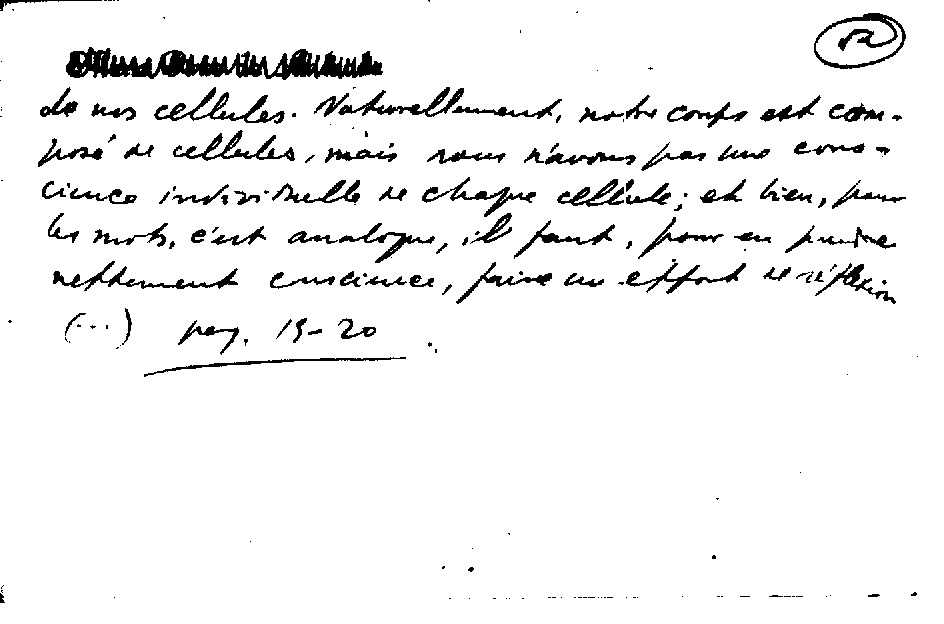 de nos cellules. Naturellement, notre corps est com-
posé de cellules, mais nous n'avons pas une cons-
cience individuelle de chaque cellule; eh bien, pour
les mots, c'est analogue, il faut, pour en prendre
nettement conscience, faire un effort de réflexion
(...) pag. 19-20